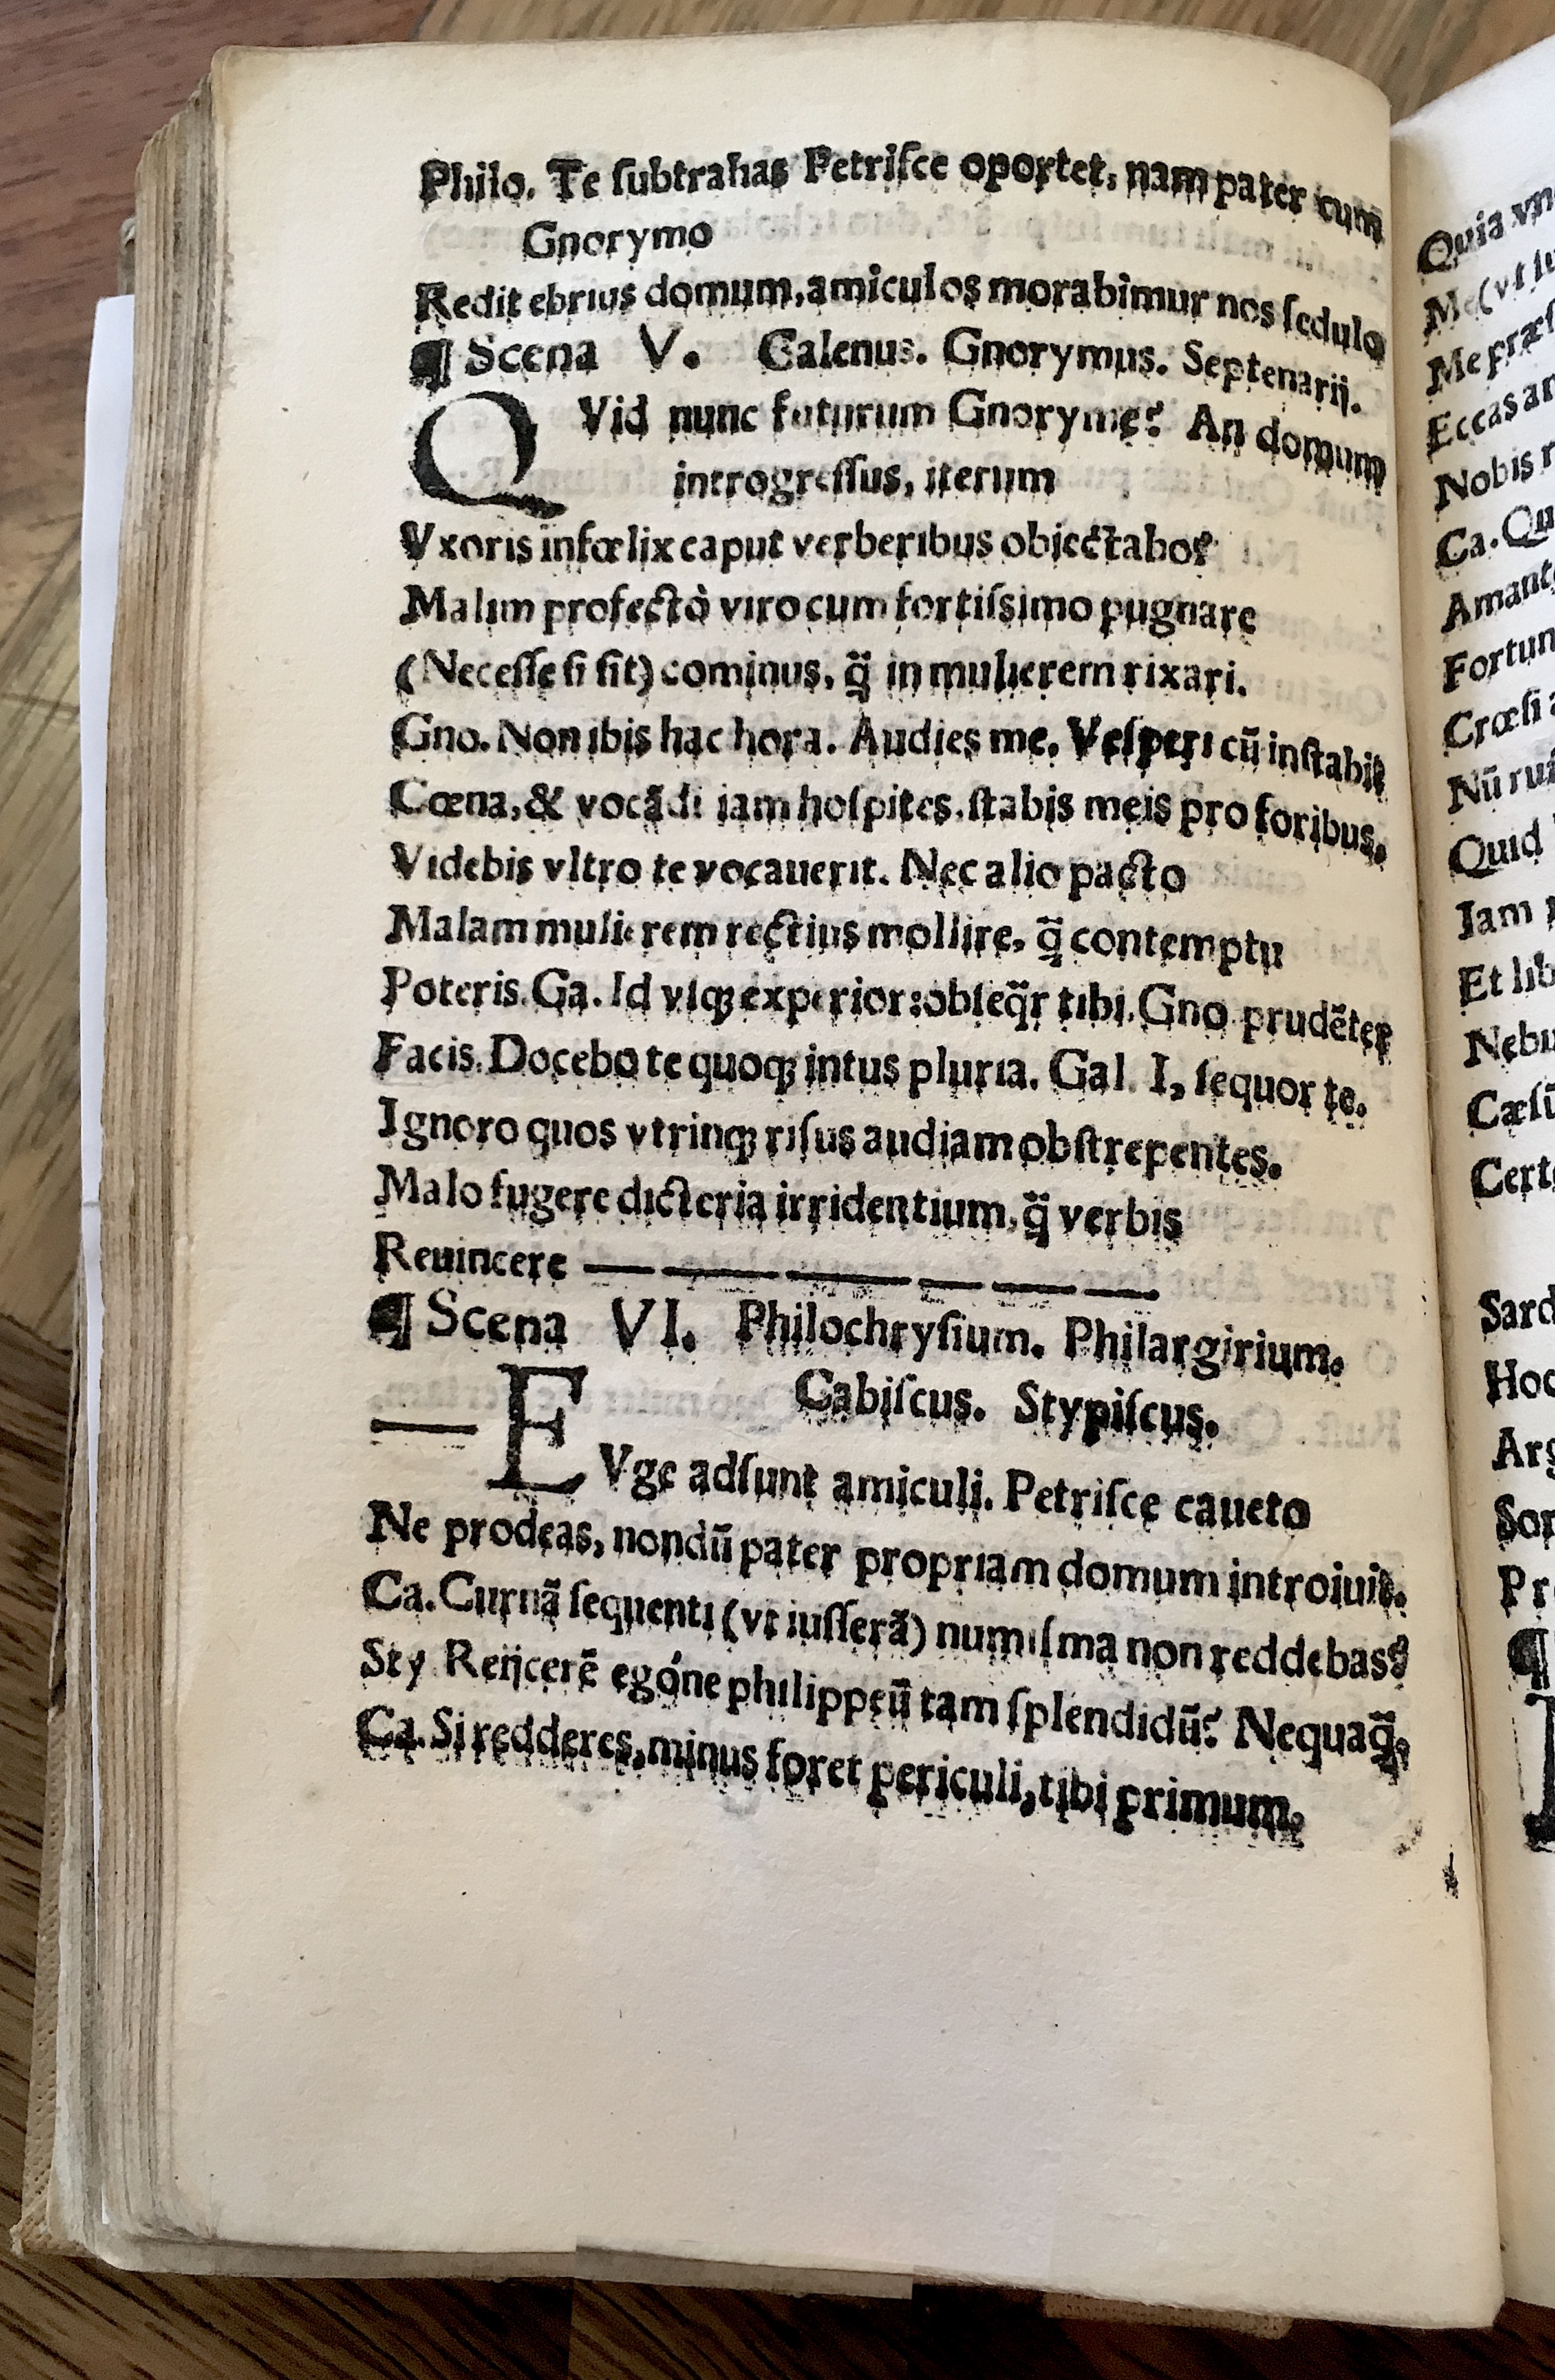 Philo. Te ſubtrahas Petriſce oportet, nam pater cum
Gnorymo
Redit ebrius domum, amiculos morabimur nos ſedulo
¶ Scena V. Galenus. Gnorymus. Septenarij.
QVid nunc futurum Gnoryme? An domum
introgreſſus, iterum
Vxoris infœlix caput verberibus obiectabo?
Malim profectò viro cum fortiſsimo pugnare
(Neceſſe ſi ſit) cominus, q̃ in mulierem rixari.
Gno. Non ibis hac hora. Audies me. Veſperi cũ inſtabit
Cœna, & vocãdi iam hoſpites, ſtabis meis pro foribus.
Videbis vltro te vocauerit. Nec alio pacto
Malam mulierem rectius mollire, q̃ contemptu
Poteris. Ga. Id vſqꝫ experior: obſeq̃r tibi. Gno prudẽter
Facis. Docebo te quoqꝫ intus pluria. Gal. I, ſequor te.
Ignoro quos vtrinqꝫ riſus audiam obſtrepentes.
Malo fugere dicteria irridentium, q̃ verbis
Reuincere — — — — — —
¶ Scena VI. Philochryſium. Philargirium.
Gabiſcus. Stypiſcus.
— EVge adſunt amiculi. Petriſce caueto
Ne prodeas, nondũ pater propriam domum introiuit.
Ca. Cur nã ſequenti (vt iuſſerã) numiſma non reddebas?
Sty Reijcerẽ egóne philippeũ tam ſplendidũ? Nequaq̃.
Ca. Si redderes, minus foret periculi, tibi primum.
Quia
Me (vt
Me
Eccas
Nobis
Ca. Qu
Amant
Fortun
Crœſi
Nũ
Quid
Iam
Et
Cert
Sard
Hoc
Arg
Pr
¶